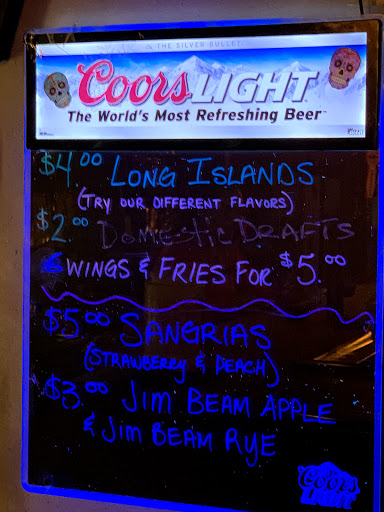 THE SILVER BULLET
Coors LIGHT
The World's Most Refreshing Beer™
$4.00 LONG ISLANDS
(TRY OUR DIFFERENT FLAVORS)
$2.00 DOMESTIC DRAFTS
6 WINGS & FRIES FOR $5.00
$5.00 SANGRIAS
(STRAWBERRY & PEACH)
$3.00 JIM BEAM APPLE
& JIM BEAM RYE
Coors
LIGHT